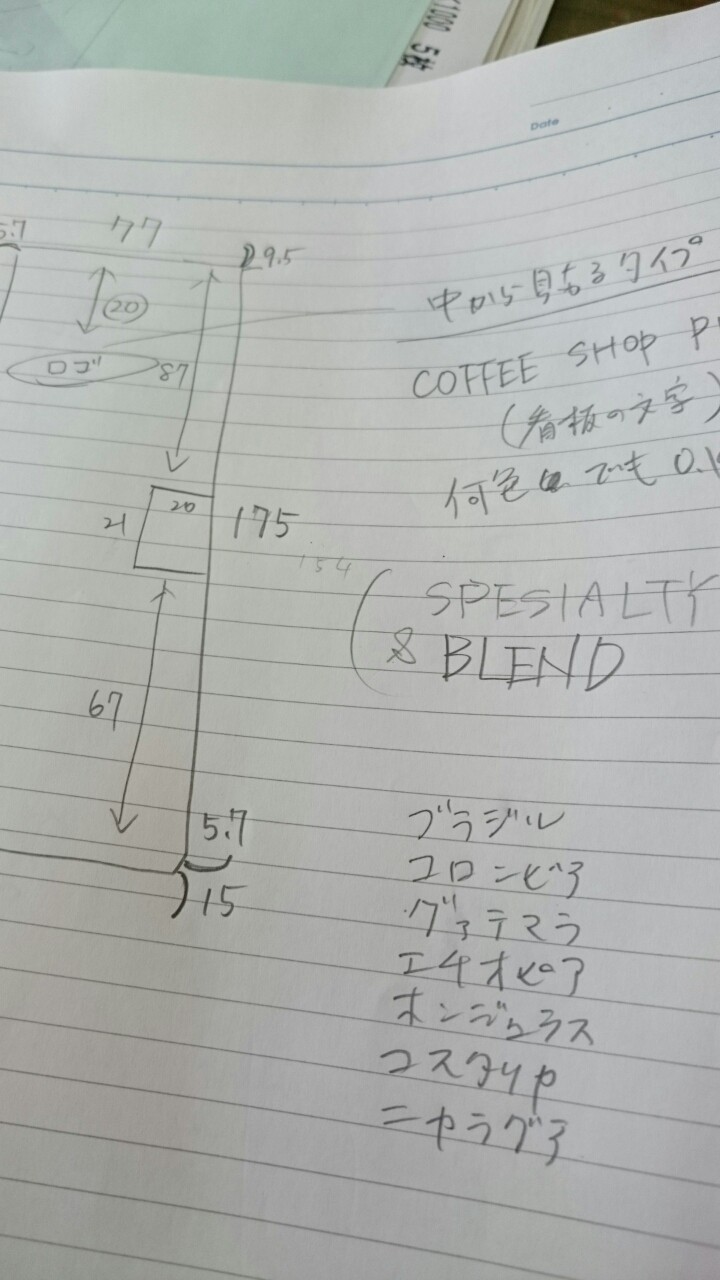 K1000 5枚
Date
5.7 77 29.5
20
ロゴ 87
21 20 175
154
67
5.7
15
中から見えるタイプ
COFFEE SHOP
(看板の文字)
何色 でも
SPESIALTY
& BLEND
ブラジル
コロンビア
グァテマラ
エチオピア
ホンジュラス
コスタリカ
ニカラグア